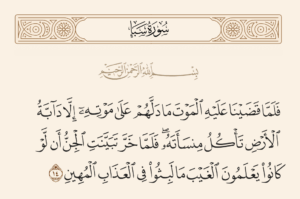 سُورَةُ سَبَإٍ
بِسْمِ ٱللَّهِ ٱلرَّحْمَٰنِ ٱلرَّحِيمِ
فَلَمَّا قَضَيْنَا عَلَيْهِ ٱلْمَوْتَ مَا دَلَّهُمْ عَلَىٰ مَوْتِهِۦٓ إِلَّا دَآبَّةُ
ٱلْأَرْضِ تَأْكُلُ مِنسَأَتَهُۥ ۖ فَلَمَّا خَرَّ تَبَيَّنَتِ ٱلْجِنُّ أَن لَّوْ
كَانُوا۟ يَعْلَمُونَ ٱلْغَيْبَ مَا لَبِثُوا۟ فِى ٱلْعَذَابِ ٱلْمُهِينِ ١٤